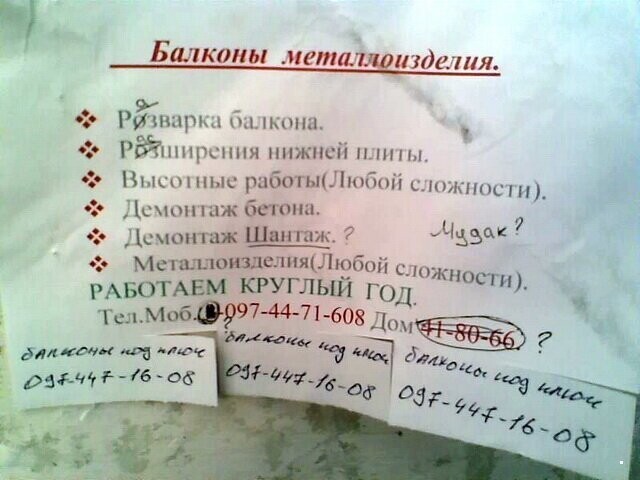 Балконы металлоизделия.
Розварка балкона.
а
Розширения нижней плиты.
ас
Высотные работы(Любой сложности).
Демонтаж бетона.
Демонтаж Шантаж. ?
Мудак?
Металлоизделия(Любой сложности).
РАБОТАЕМ КРУГЛЫЙ ГОД.
Тел.Моб. 097-44-71-608 Дом 41-80-66. ?
?
балконы под ключ
097-447-16-08
балконы под ключ
097-447-16-08
балконы под ключ
097-447-16-08